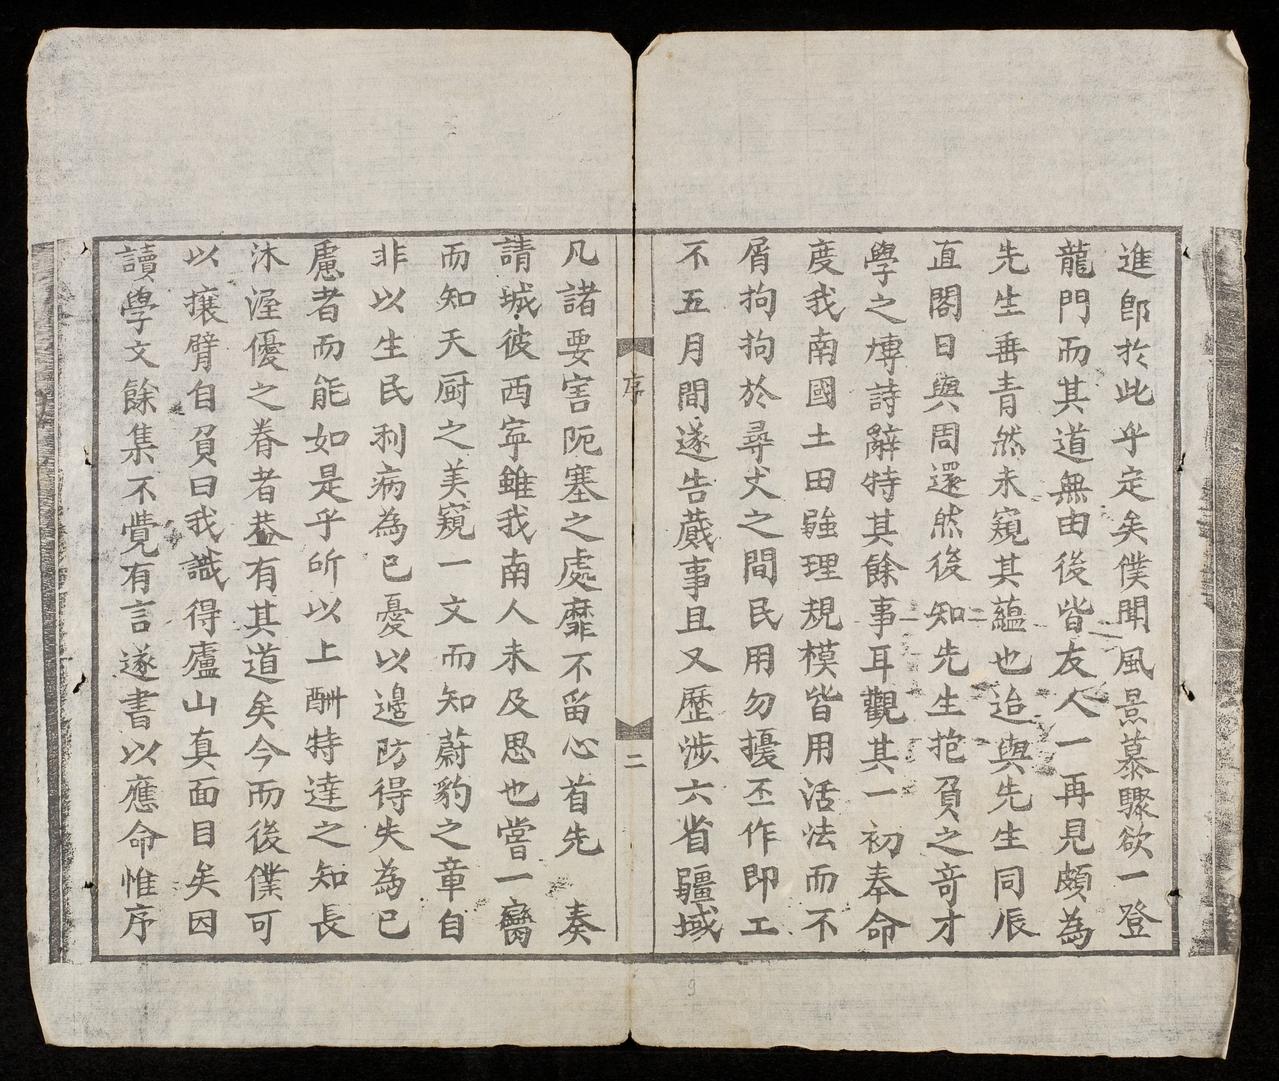 進郎於此乎定矣僕聞風景慕驟欲一登
龍門而其道無由後皆友人一再見頗為
先生垂青然未窺其蘊也迨與先生同辰
直閣日與周還然後知先生抱負之竒才
學之博詩辭特其餘事耳觀其一初奉命
度我南國土田疆理規模皆用活法而不
屑拘拘於尋丈之間民用勿擾丕作即工
不五月間遂告蕆事且又歷涉六省疆域
序
二
凡諸要害阨塞之處靡不留心首先 奏
請城彼西寧雖我南人未及思也嘗一臠
而知天厨之美窺一文而知蔚豹之章自
非以生民利病為已憂以邊防得失為已
慮者而能如是乎所以上酬特達之知長
沐渥優之眷者葢有其道矣今而後僕可
以攘臂自負曰我識得廬山真面目矣因
讀學文餘集不覺有言遂書以應命惟序
9